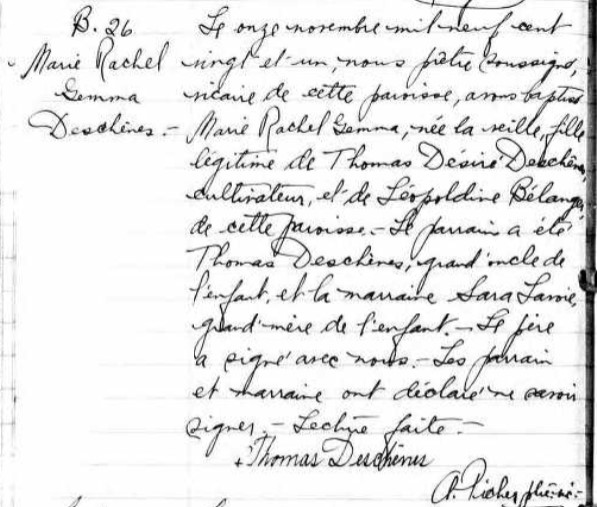 B. 26
Marie Rachel
Gemma
Deschênes.-
Le onze novembre mil neuf cent
vingt et un, nous prêtre soussigné,
vicaire de cette paroisse, avons baptisé
Marie Rachel Gemma, née la veille, fille
légitime de Thomas Désiré Deschênes,
cultivateur, et de Léopoldine Bélanger,
de cette paroisse.- Le parrain a été
Thomas Deschênes, grand'oncle de
l'enfant, et la marraine Sara Lavoie,
grand'mère de l'enfant.- Le père
a signé avec nous.- Les parrain
et marraine ont déclaré ne savoir
signer.- Lecture faite.-
Thomas Deschênes
A.